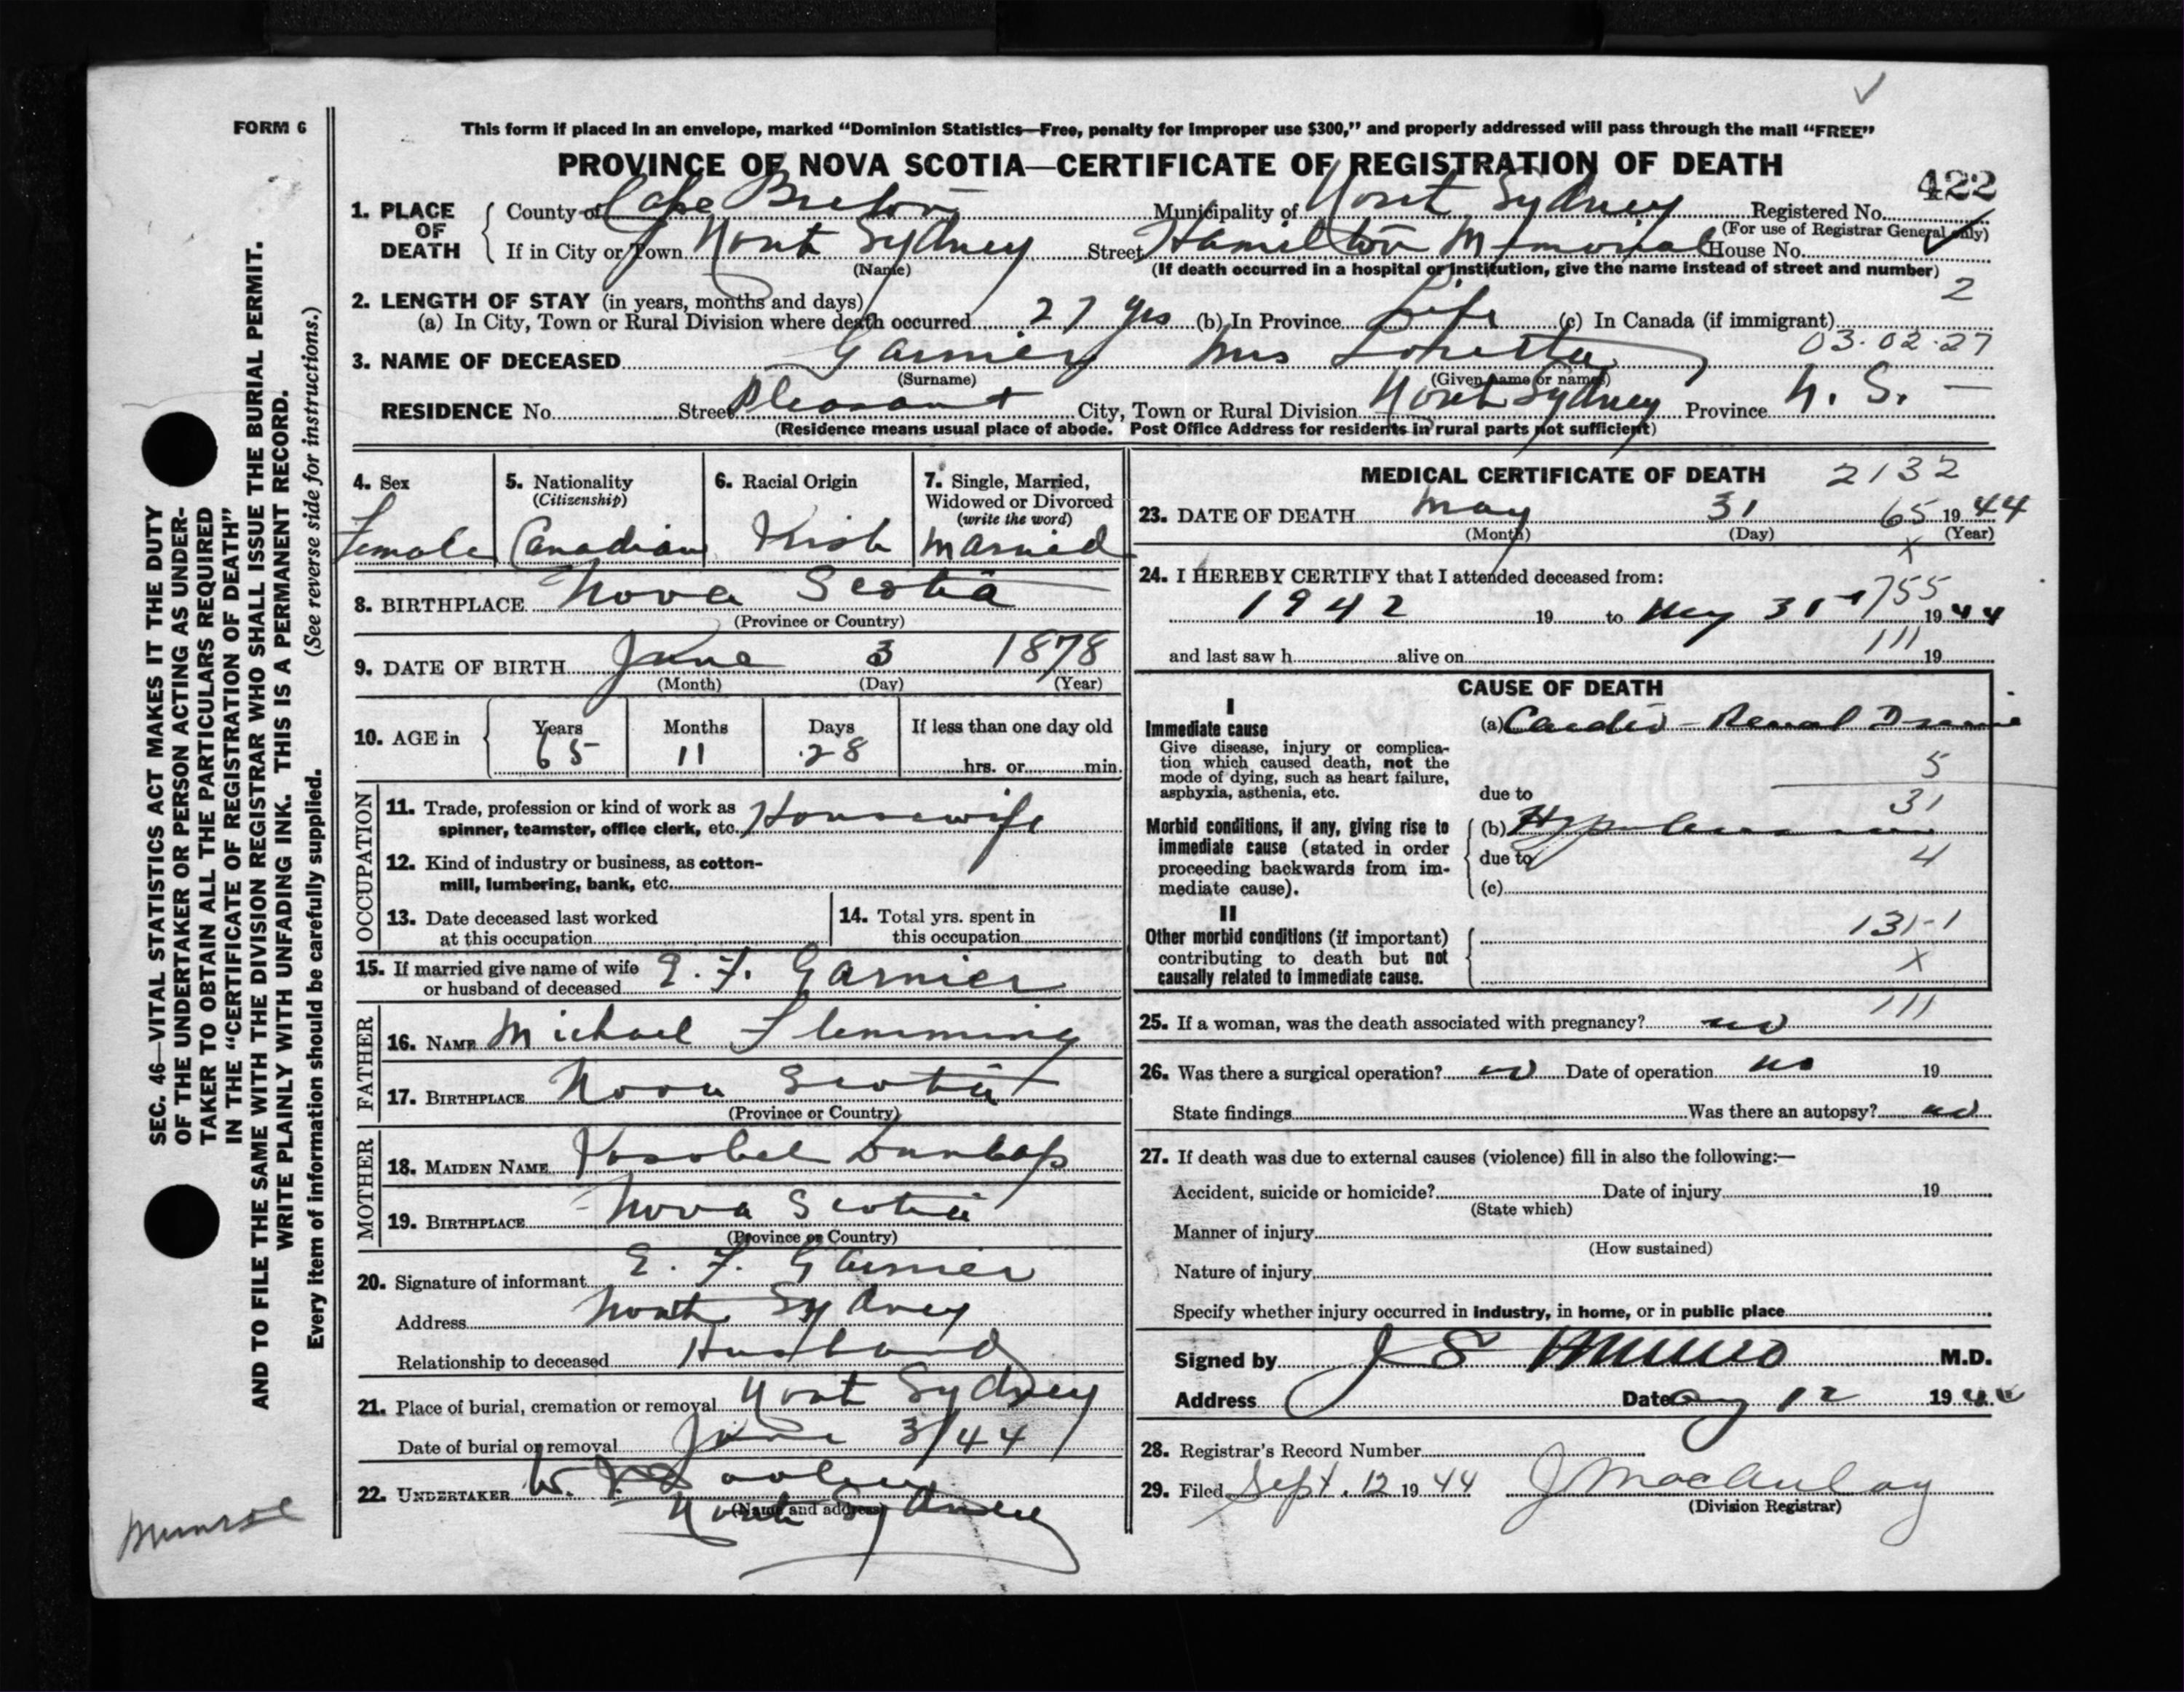 FORM 6
This form if placed in an envelope, marked “Dominion Statistics—Free, penalty for improper use $300,” and properly addressed will pass through the mail “FREE”
PROVINCE OF NOVA SCOTIA—CERTIFICATE OF REGISTRATION OF DEATH
422
1. PLACE OF DEATH
County of Cape Breton Municipality of North Sydney Registered No.
(For use of Registrar General only)
If in City or Town North Sydney Street Hamilton Memorial House No.
(Name) (If death occurred in a hospital or institution, give the name instead of street and number)
2. LENGTH OF STAY (in years, months and days) 2
(a) In City, Town or Rural Division where death occurred 27 yrs (b) In Province Life (c) In Canada (if immigrant)
03.02.27
3. NAME OF DECEASED Garnier Mrs Loretta
(Surname) (Given name or names)
RESIDENCE No. Street Pleasant City, Town or Rural Division North Sydney Province N. S. —
(Residence means usual place of abode. Post Office Address for residents in rural parts not sufficient)
4. Sex
Female
5. Nationality
(Citizenship)
Canadian
6. Racial Origin
Irish
7. Single, Married,
Widowed or Divorced
(write the word)
Married
8. BIRTHPLACE Nova Scotia
(Province or Country)
9. DATE OF BIRTH June 3 1878
(Month) (Day) (Year)
10. AGE in
Years Months Days If less than one day old
65 11 28 hrs. or min.
OCCUPATION
11. Trade, profession or kind of work as
spinner, teamster, office clerk, etc. Housewife
12. Kind of industry or business, as cotton-
mill, lumbering, bank, etc.
13. Date deceased last worked
at this occupation
14. Total yrs. spent in
this occupation
15. If married give name of wife
or husband of deceased E. F. Garnier
FATHER
16. NAME Michael Flemming
17. BIRTHPLACE Nova Scotia
(Province or Country)
MOTHER
18. MAIDEN NAME Dunlap
19. BIRTHPLACE Nova Scotia
(Province or Country)
20. Signature of informant E. F. Garnier
Address North Sydney
Relationship to deceased Husband
21. Place of burial, cremation or removal North Sydney
Date of burial or removal June 3/44
22. UNDERTAKER W.
(Name and address)
North Sydney
MEDICAL CERTIFICATE OF DEATH 2132
23. DATE OF DEATH May 31 65 1944
(Month) (Day) (Year)
x
24. I HEREBY CERTIFY that I attended deceased from:
755
1942 19 to May 31 1944
111
and last saw h alive on 19
CAUSE OF DEATH
I
Immediate cause
Give disease, injury or complica-
tion which caused death, not the
mode of dying, such as heart failure,
asphyxia, asthenia, etc.
(a) Cardio-Renal Disease
5
due to
31
Morbid conditions, if any, giving rise to
immediate cause (stated in order
proceeding backwards from im-
mediate cause).
(b) Hypertension
due to 4
(c)
II
Other morbid conditions (if important)
contributing to death but not
causally related to immediate cause.
131-1
x
111
25. If a woman, was the death associated with pregnancy? no
26. Was there a surgical operation? no Date of operation no 19
State findings Was there an autopsy? no
27. If death was due to external causes (violence) fill in also the following:—
Accident, suicide or homicide? Date of injury 19
(State which)
Manner of injury
(How sustained)
Nature of injury
Specify whether injury occurred in industry, in home, or in public place
Signed by J S Munro M.D.
Address Date Aug 12 1944
28. Registrar's Record Number
29. Filed Sept. 12 1944 J MacAulay
(Division Registrar)
SEC. 46—VITAL STATISTICS ACT MAKES IT THE DUTY
OF THE UNDERTAKER OR PERSON ACTING AS UNDER-
TAKER TO OBTAIN ALL THE PARTICULARS REQUIRED
IN THE “CERTIFICATE OF REGISTRATION OF DEATH”
AND TO FILE THE SAME WITH THE DIVISION REGISTRAR WHO SHALL ISSUE THE BURIAL PERMIT.
WRITE PLAINLY WITH UNFADING INK. THIS IS A PERMANENT RECORD.
Every item of information should be carefully supplied. (See reverse side for instructions.)
Munroe